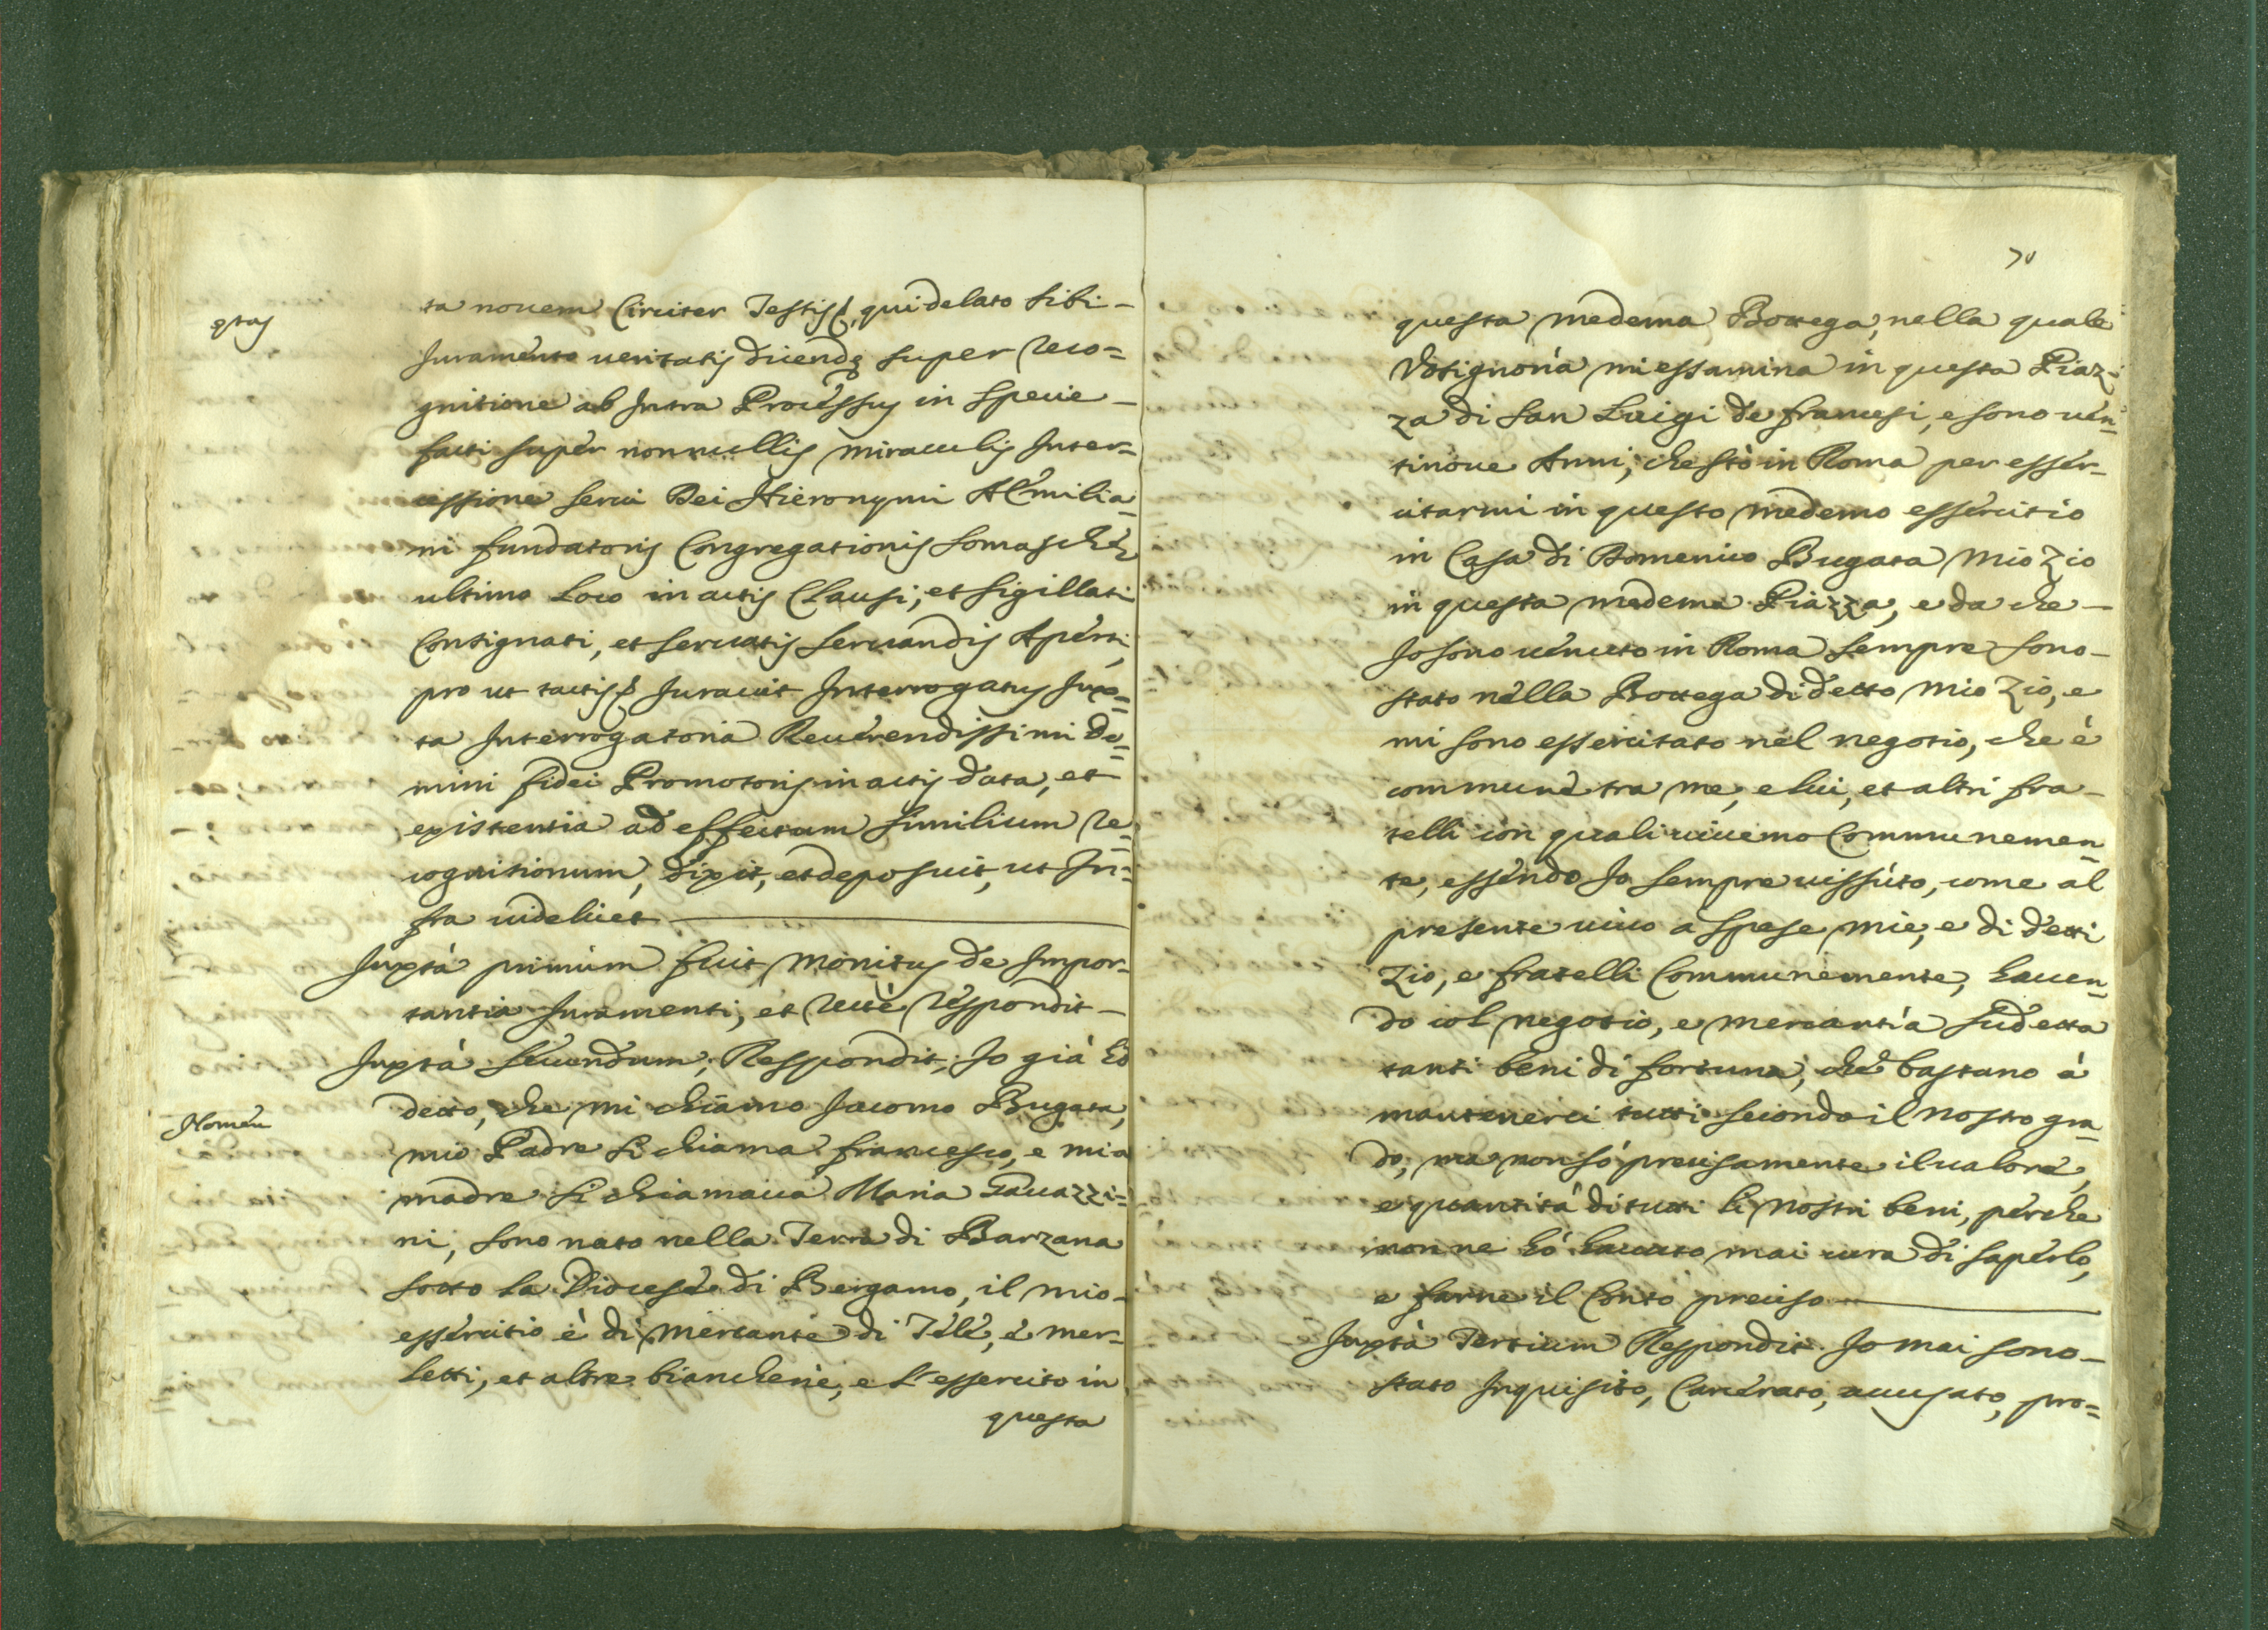 ętas
ta nouem Circiter Testis &, qui delato sibi -
Juramento ueritatis dicendę super reco=
gnitione ab Intra Processus in specie -
facti super nonnullis miraculis Inter=
cessione serui Dei Hieronymi AEmilia=
ni fundatoris Congregationis Somaschę
ultimo Loco in actis Clausi, et sigillati
Consignati, et seruatis seruandis Aperti,
pro ut tactis & Jurauit Interrogatus Jux=
ta Interrogatoria Reuerendissimi Do=
mini fidei Promotoris in actis data, et
existentia ad effectum similium re=
cognitionum, dixit, et deposuit, ut In=
fra uidelicet
Juxtà primùm fuit monitus de Impor=
tantia Juramenti, et rectè respondit -
Juxtà secundum, Respondit, Jo già hò
Nomen
detto, che mi chiamo Jacomo Bugata,
mio Padre si chiama francesco, e mia
madre si chiamaua Maria Gauazzi=
ni, sono nato nella Terra di Barzana
sotto la Diocese di Bergamo, il mio -
essercitio è di mercante di Tele, e mer=
letti, et altre biancherie, e l'essercito in
questa
70
questa medema Bottega, nella quale
Vosignoria mi essamina in questa Piaz=
za di San Luigi de francesi, e sono uen=
tinoue Anni, che stò in Roma per esser-
citarmi in questo medemo essercitio
in Casa di Domenico Bugata mio Zio
in questa medema Piazza, e da che -
Jo sono uenuto in Roma sempre sono -
stato nella Bottega di detto mio Zio, e
mi sono essercitato nel negotio, che è
commune tra me, e lui, et altri fra -
telli con quali uiuemo Communemen=
te, essendo Jo sempre uissuto, come al
presente uiuo a spese mie, e di detti
Zio, e fratelli Communemente, hauen=
do col negotio, e mercantia sudetta
tanti beni di fortuna, che bastano à
mantenerci tutti secondo il nostro gra=
do, ma non sò precisamente il ualore,
e quantità di tutti li nostri beni, perche
non ne hò hauuto mai cura di saperlo,
e farne il Conto preciso
Juxtà Tertium Respondit. Jo mai sono -
stato Inquisito, Carcerato, accusato, pro=